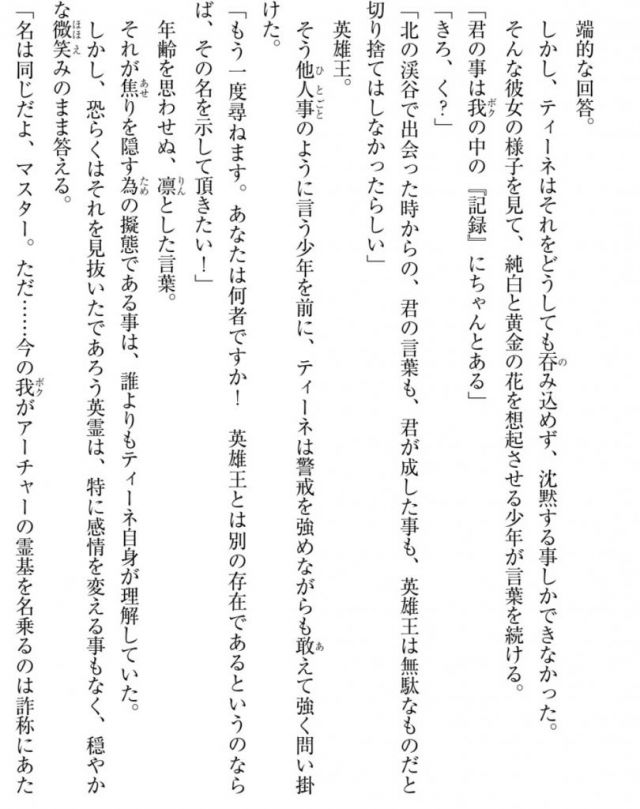 端的な回答。
しかし、ティーネはそれをどうしても呑み込めず、沈黙する事しかできなかった。
そんな彼女の様子を見て、純白と黄金の花を想起させる少年が言葉を続ける。
「君の事は我の中の『記録』にちゃんとある」
「きろ、く?」
「北の渓谷で出会った時からの、君の言葉も、君が成した事も、英雄王は無駄なものだと
切り捨てはしなかったらしい」
英雄王。
そう他人事のように言う少年を前に、ティーネは警戒を強めながらも敢えて強く問い掛
けた。
「もう一度尋ねます。あなたは何者ですか! 英雄王とは別の存在であるというのなら
ば、その名を示して頂きたい!」
年齢を思わせぬ、凛とした言葉。
それが焦りを隠す為の擬態である事は、誰よりもティーネ自身が理解していた。
しかし、恐らくはそれを見抜いたであろう英霊は、特に感情を変える事もなく、穏やか
な微笑みのまま答える。
「名は同じだよ、マスター。ただ……今の我がアーチャーの霊基を名乗るのは詐称にあた